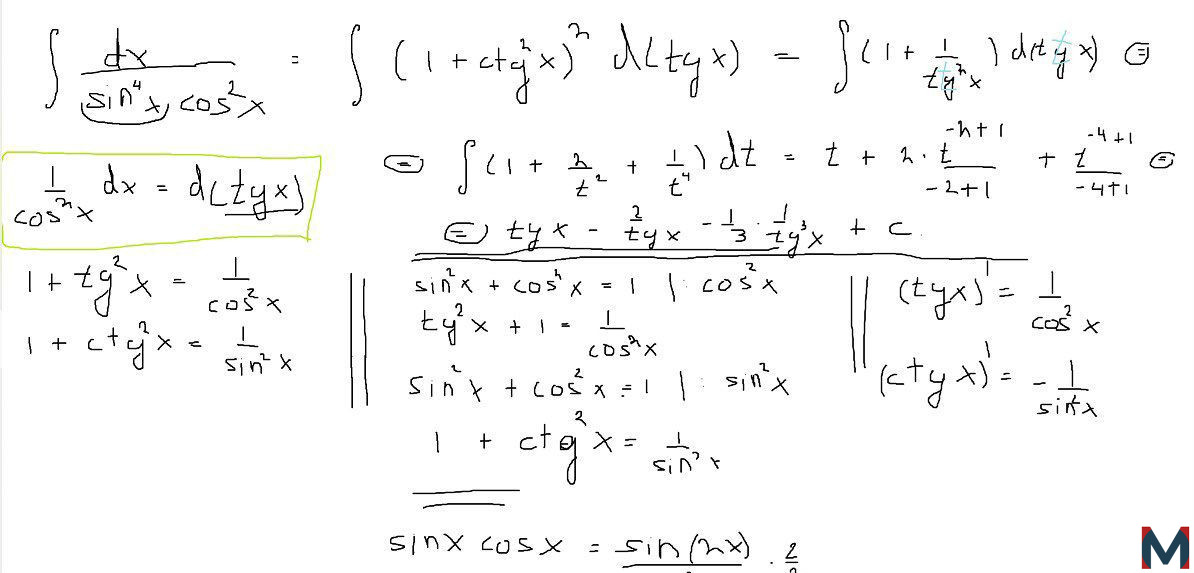 ∫ dx / (sin⁴x cos²x) = ∫ (1 + ctg²x)² d(tgx) = ∫ (1 + 1/tg²x) d(tgx) ⊜
⊜ ∫ (1 + 2/t² + 1/t⁴) dt = t + 2 · t⁻²⁺¹/(-2+1) + t⁻⁴⁺¹/(-4+1) ⊜
1/cos²x dx = d(tgx)
⊜ tgx - 2/tgx - 1/3 · 1/tg³x + c.
1 + tg²x = 1/cos²x
1 + ctg²x = 1/sin²x
sin²x + cos²x = 1 | : cos²x
tg²x + 1 = 1/cos²x
sin²x + cos²x = 1 | : sin²x
1 + ctg²x = 1/sin²x
(tgx)' = 1/cos²x
(ctgx)' = - 1/sin²x
sinx cosx = sin(2x) · 2/2
M